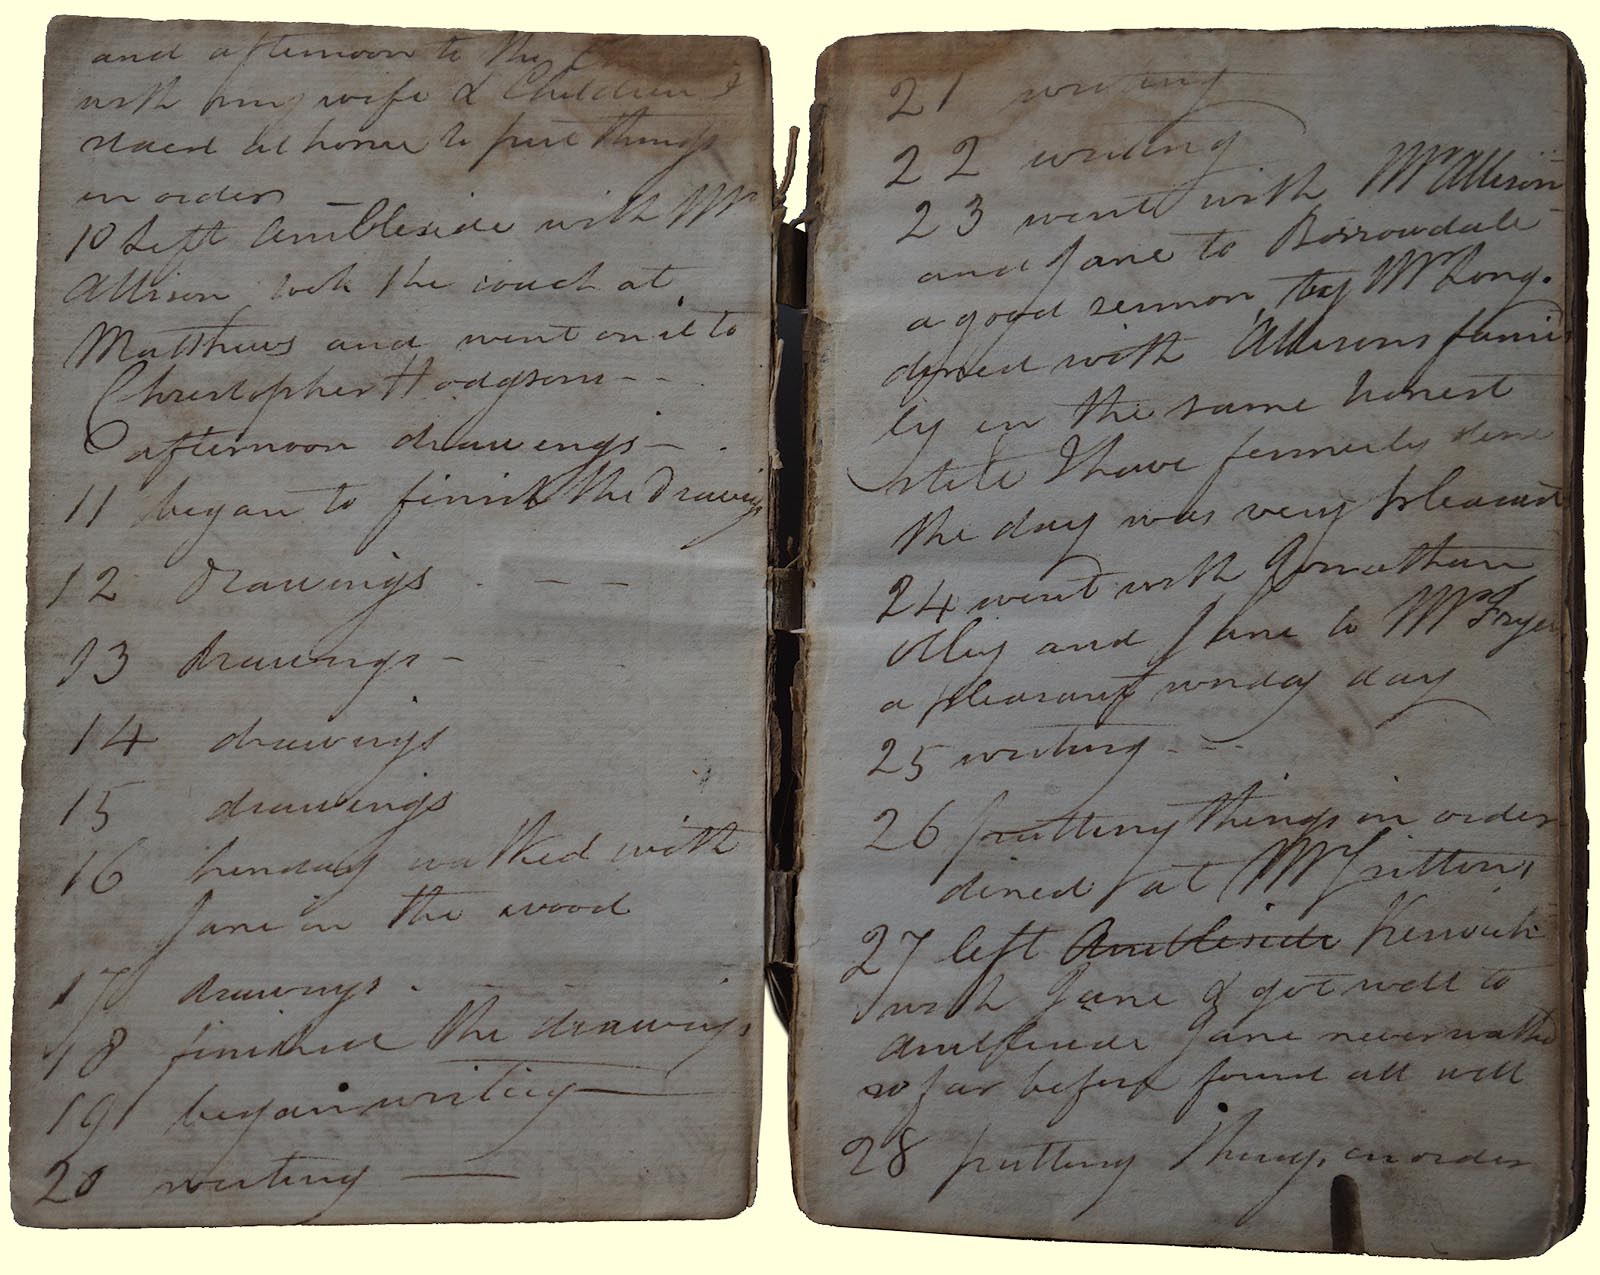 and afternoon to the
with my wife & Children I
staed at home to put things
in order
10 Left Ambleside with Mr
Allison took the coach at
Matthews and went on it to
Christopher Hodgsons - -
afternoon drawings -
11 began to finish the Drawings
12 Drawings - - -
13 drawings -
14 drawings
15 drawings
16 walked with
Jane in the wood
17 drawings -
18 finished the drawings
19 began writing
20 writing
21 writing
22 writing
23 went with Mr Allison
and Jane to Borrowdale
a good sermon by Mr Long.
dined with Allisons fami
ly in the same honest
stile I have formerly done
the day was very pleasant
24 went with Jonathan
Otley and Jane to Mr Fryer
a pleasant day
25 writing - - -
26 putting things in order
dined at Mr
27 left Ambleside Keswick
with Jane & got well to
Ambleside Jane never walked
so far before found all well
28 putting things in order